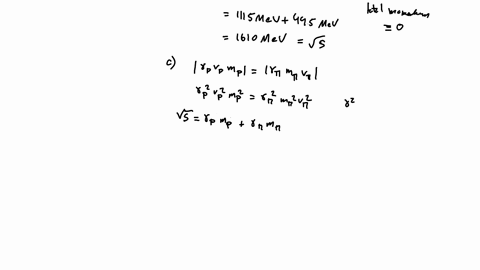 = 1115 MeV + 495 MeV
= 1610 MeV = √S
total momentum
= 0
c) |γₚ vₚ mₚ| = |γ_π m_π v_π|
γₚ² vₚ² mₚ² = γ_π² m_π² v_π² γ²
√S = γₚ mₚ + γ_π m_π